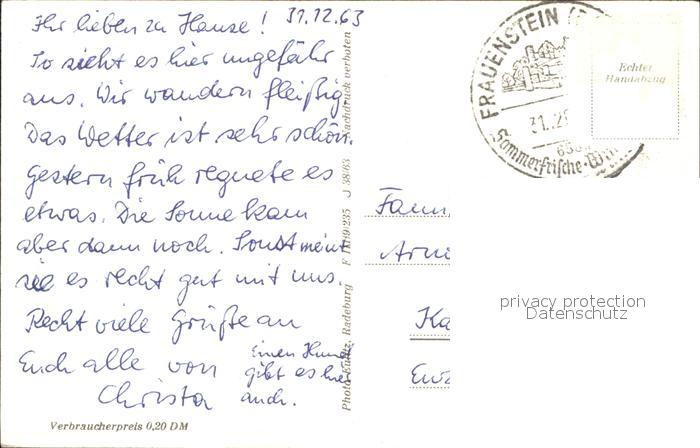 Ihr lieben zu Hause! 31.12.63
So sieht es hier ungefähr
aus. Wir wandern fleißig.
Das Wetter ist sehr schön.
Gestern früh regnete es
etwas. Die Sonne kam
aber dann noch. Sonst meint
sie es recht gut mit uns.
Recht viele Grüße an
Euch alle von
Christa
Einen Hund
gibt es hier
auch.
Verbraucherpreis 0,20 DM
Radeburg
J 38/63 Nachdruck verboten
FRAUENSTEIN
31.12
Sommerfrische
Echter
Handabzug
Fam
Arn
Ka
privacy protection
Datenschutz